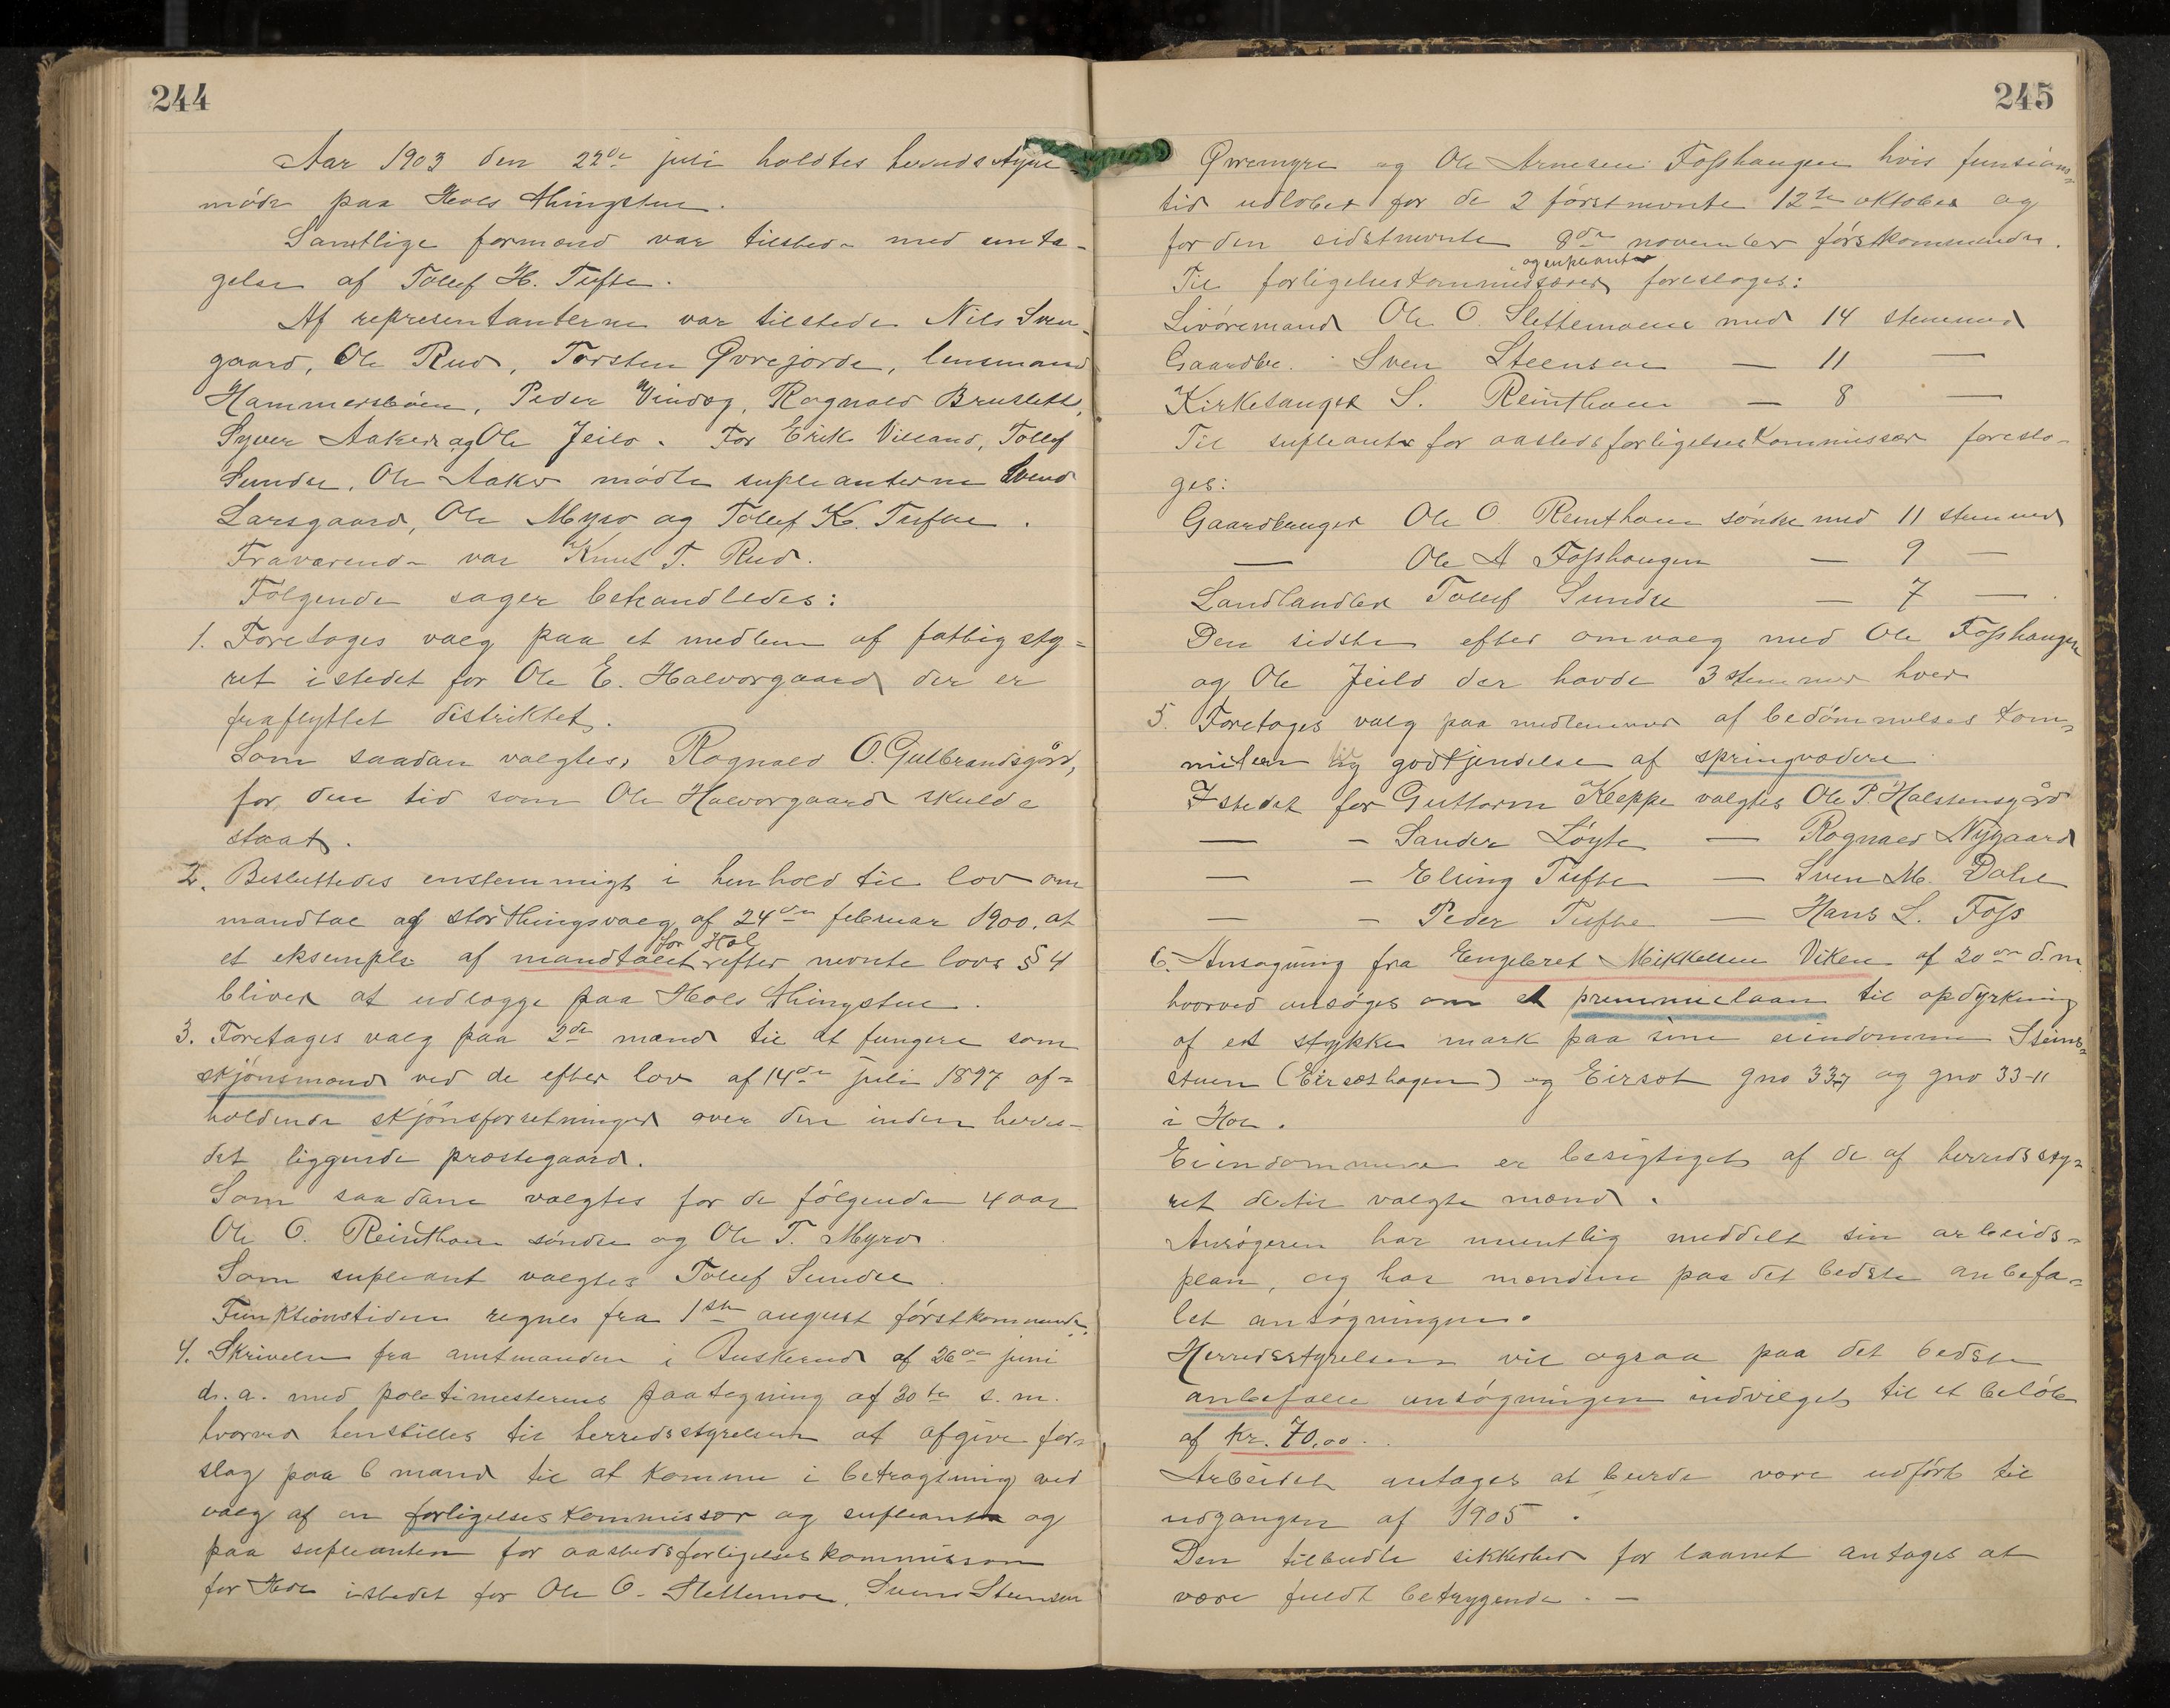 244
Aar 1903 den 22de juli holdtes herredsstyre-
møde paa Hols thingstue.
Samtlige formænd var tilstede med unta-
gelse af Tollef H. Tufte.
Af repræsentanterne var tilstede Nils Sven-
gaard, Ole Rud, Torsten Øvrejorde, lensmand
Hammersbøen, Peder Vindeg, Ragnald Bruslett,
Syver Aaker og Ole Jeilo. For Erik Villand, Tollef
Sundre, Ole Aaker mødte supleanterne Svend
Larsgaard, Ole Myro og Tollef K. Tufte.
Fraværende var Knut T. Rud.
Følgende sager behandledes:
1. Foretoges valg paa et medlem af fattigsty-
ret istedet for Ole E. Halvorgaard der er
fraflyttet distriktet.
Som saadan valgtes, Ragnald O. Gulbrandsgård,
for den tid som Ole Halvorgaard skulde
staat.
2. Besluttedes enstemmigt i henhold til lov om
mandtal og storthingsvalg af 24de februar 1900. at
et eksemplar af mandtallet for Hol efter nevnte lovs § 4
bliver at udlægge paa Hols thingstue.
3. Foretoges valg paa 2de mænd til at fungere som
skjønsmænd ved de efter lov af 14de juli 1897 af-
holdende skjønsforretninger over den inden herre-
det liggende præstegaard.
Som saadane valgtes for de følgende 4 aar
Ole O. Reinthon søndre og Ole T. Myro.
Som supleant valgtes Tollef Sundre.
Funktionstiden regnes fra 1ste august førstkommende.
4. Skrivelse fra amtmanden i Buskerud af 26de juni
d. a. med politimesterens paategning af 30te s. m.
hvorved henstilles til herredsstyrelsen at afgive for-
slag paa 6 mænd til at komme i betragtning ved
valg af en forligelseskommissær og supleanter og
paa supleanten for aastedsforligelseskommissæren
for Hol istedet for Ole O. Slettemoe, Svend Steensen
245
Øvremyre og Ole Arnesen Fosshaugen hvis funsions-
tid udløber for de 2 førstnevnte 12te oktober og
for den sidstnevnte 8de november førstkommende.
Til forligelseskommissærer og supleanter foresloges:
Livøremand Ole O. Slettemoen med 14 stemmer
Gaardbr. Sven Steensen — 11 —
Kirkesanger S. Reinthon — 8 —
Til supleanter for aastedsforligelseskommissær foreslo-
ges:
Gaardbruger Ole O. Reinthon søndre med 11 stemmer
— Ole A Fosshaugen — 9 —
Landhandler Tollef Sundre — 7 —
Den sidste efter omvalg med Ole Fosshaugen
og Ole Jeilo der havde 3 stemmer hver
5. Foretoges valg paa medlemmer af bedømmelses kom-
miteen til godkjendelse af springvædere.
I stedet for Guttorm Kleppe valgtes Ole P. Halstensgård
— - Sander Løyte — Ragnald Nygaard
— - Elling Tufte — Sven M. Dahl
— - Peder Tufte — Hans L. Foss
6. Ansøgning fra Engebret Mikkelsen Viken af 20de d.m.
hvorved ansøges om et premmielaan til opdyrkning
af et stykke mark paa sine eiendomme Steins-
stuen (Eirsethagen) og Eirset gno 33,7 og gno 33-11
i Hol.
Eiendommene er besigtiget af de af herredssty-
ret dertil valgte mænd.
Ansøgeren har muntlig meddelt sin arbeids-
plan, og har mændene paa det bedste anbefa-
let ansøgningen.
Herredsstyrelsen vil ogsaa paa det bedste
anbefalle ansøgningen indvilget til et beløb
af kr. 70,00.
Arbeidet antages at burde være udført til
udgangen af 1905.
Den tilbudte sikkerhed for laanet antages at
være fuldt betryggende. —